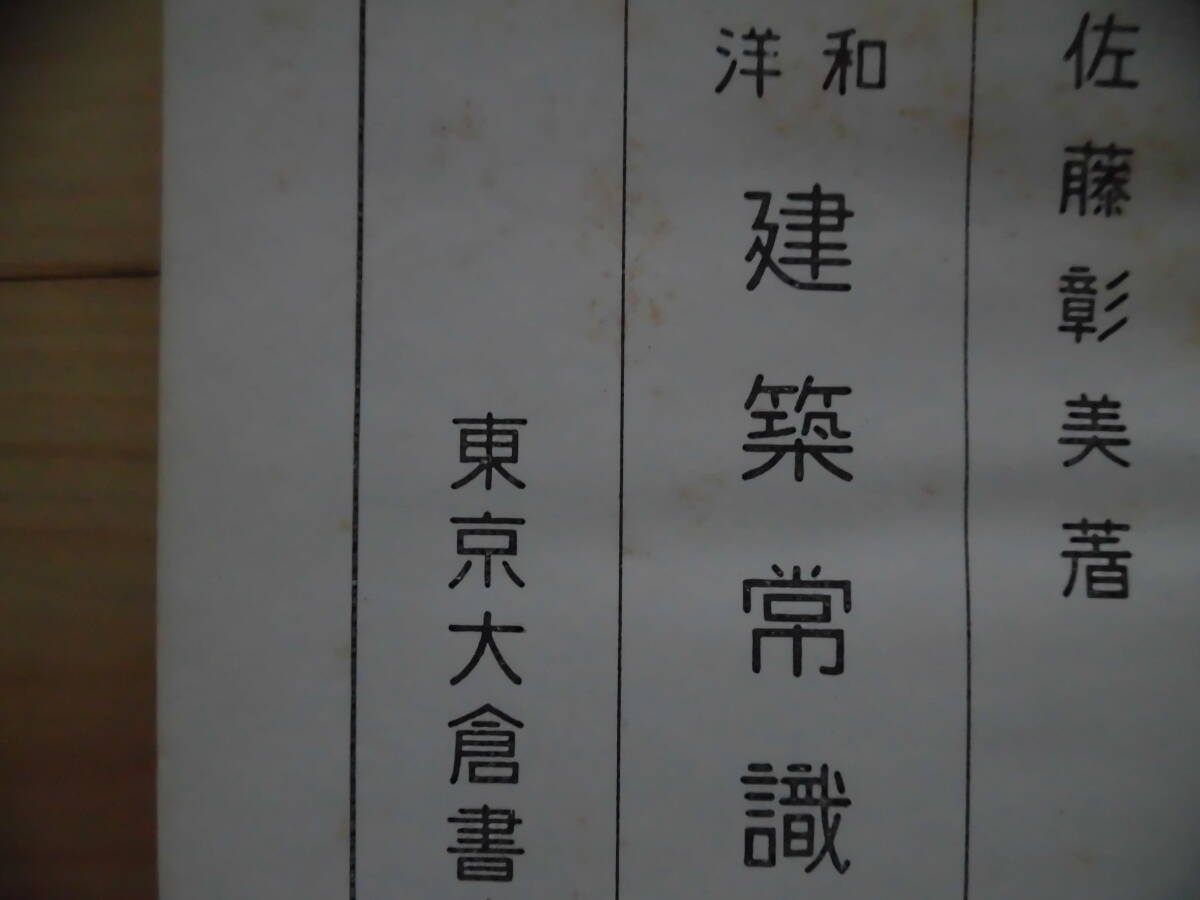 佐藤彰美著
和洋
建築常識
東京大倉書